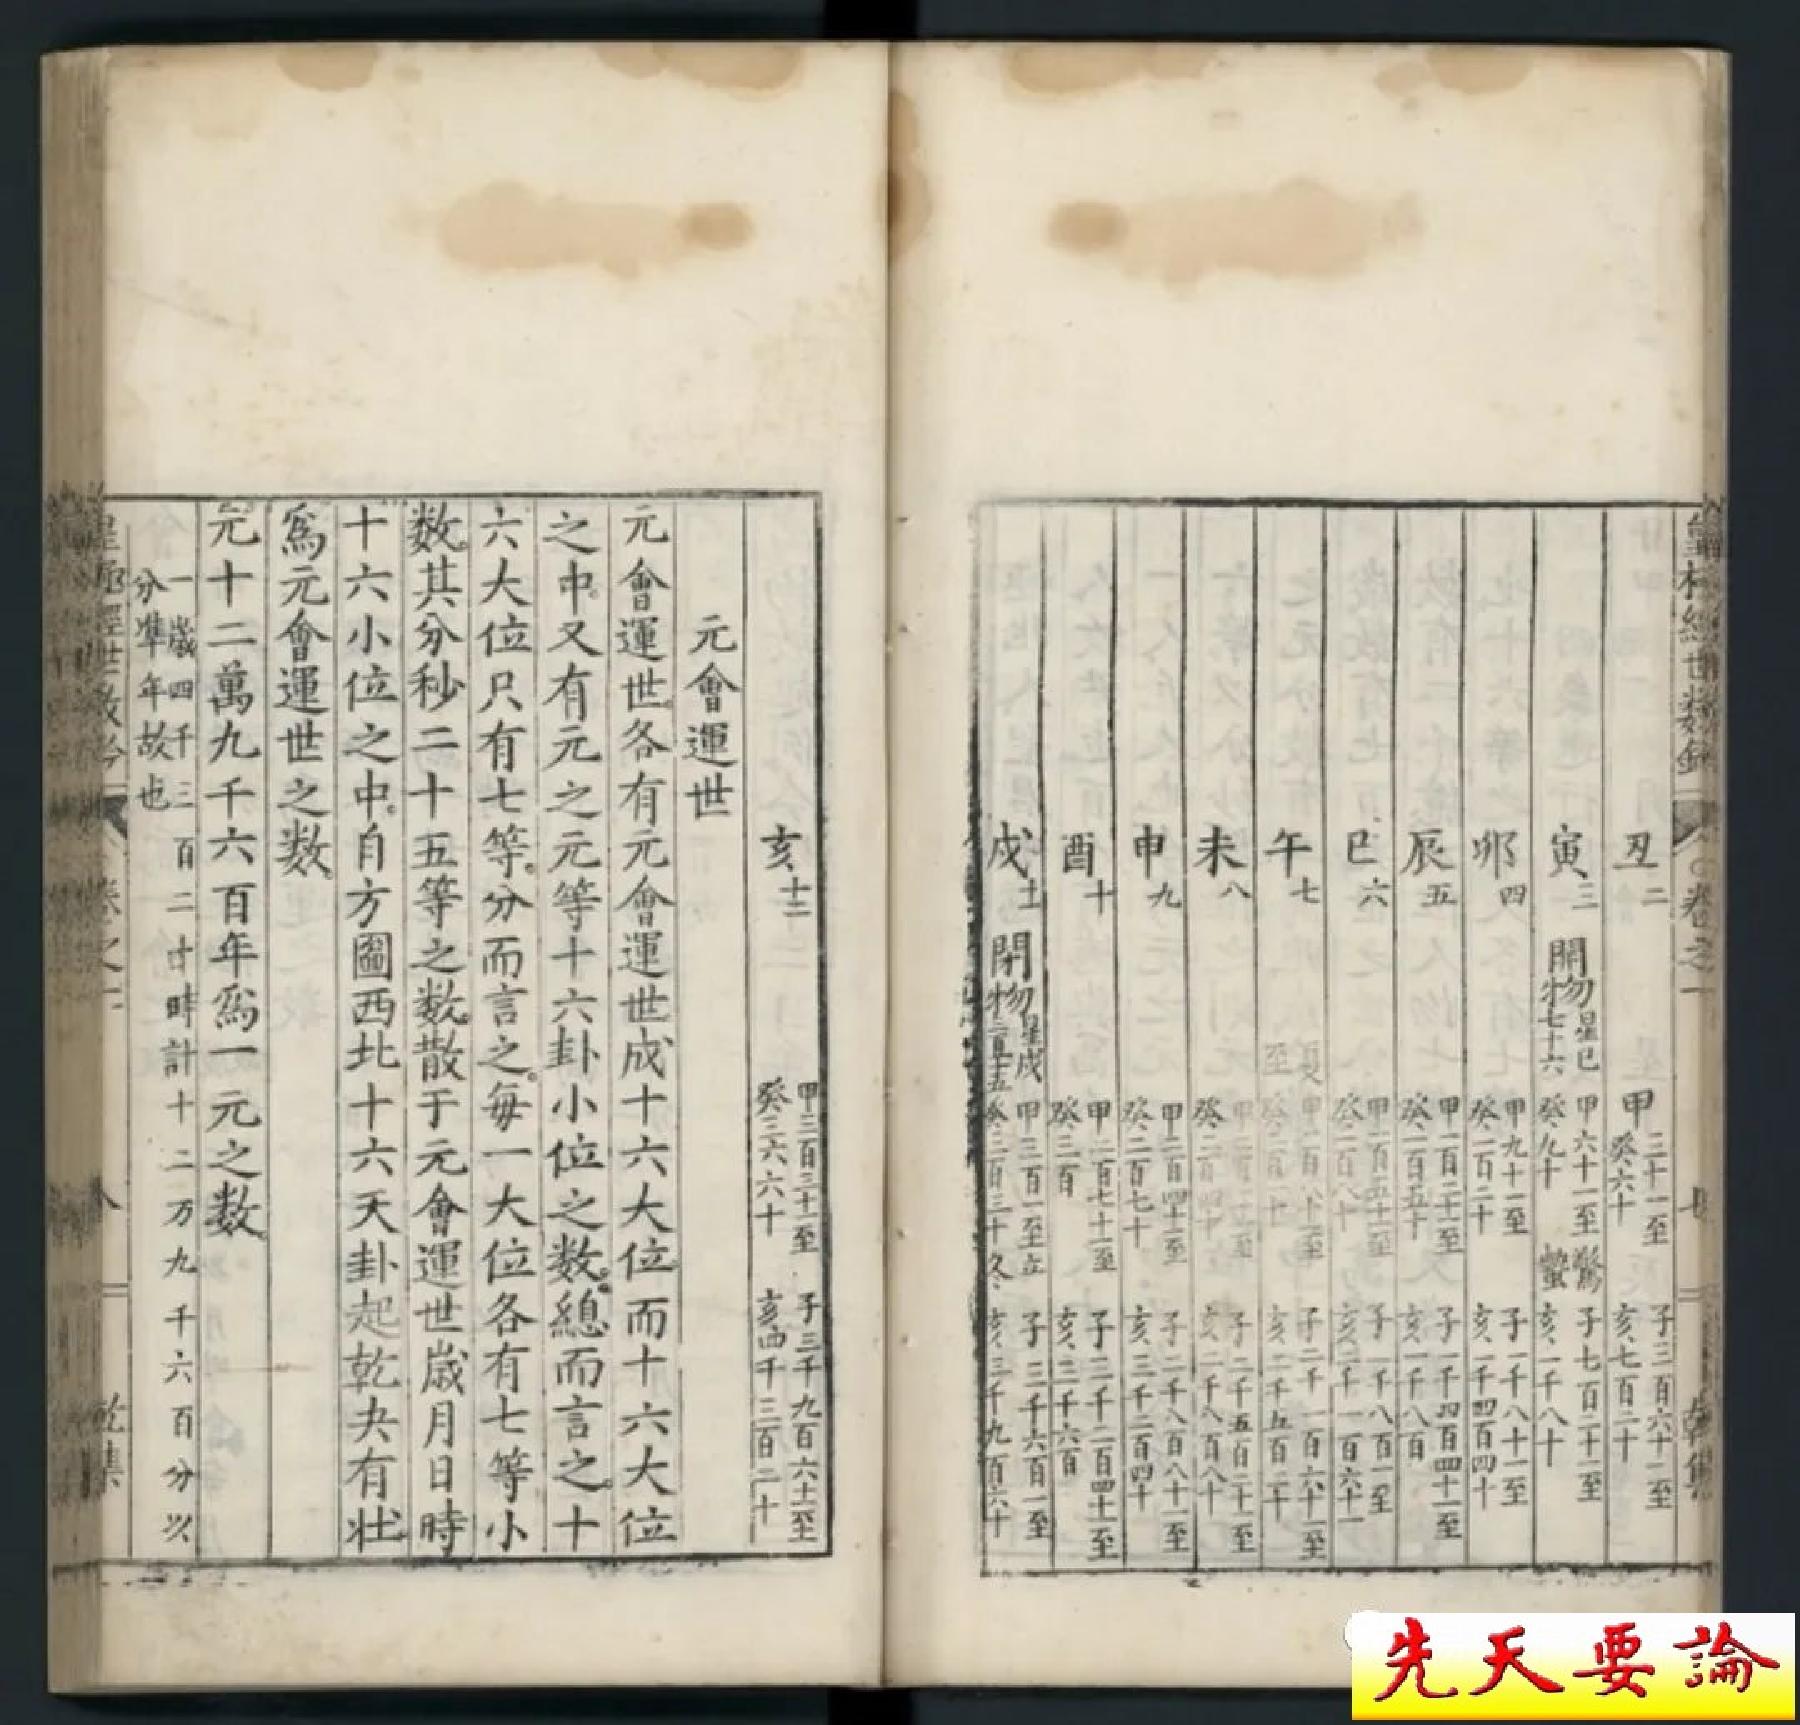 丑二 甲三十一至癸六十 子三百六十一至亥七百二十
寅三 開物星己七十六 甲六十一至癸九十 驚蟄 子七百二十一至亥一千八十
卯四 甲九十一至癸一百二十 子一千八十一至亥一千四百四十
辰五 甲一百二十一至癸一百五十 子一千四百四十一至亥一千八百
巳六 子一千八百一至
午七 夏至
未八 子二千五百二十一至亥二千八百八十
申九 甲二百四十一至癸二百七十 子二千八百八十一至亥三千二百四十
酉十 甲二百七十一至癸三百 子三千二百四十一至亥三千六百
戌十一 閉物星戌三百一十五 甲三百一至癸三百三十 立冬 子三千六百一至亥三千九百六十
亥十二 甲三百三十一至癸三百六十 子三千九百六十一至亥四千三百二十
元會運世
元會運世各有元會運世成十六大位而十六大位
之中又有元之元等十六卦小位之數總而言之十
六大位只有七等分而言之每一大位各有七等小
数其分秒二十五等之数散于元會運世歲月日時
十六小位之中自方圖西北十六天卦起乾夬有壯
爲元會運世之数
元十二萬九千六百年爲一元之数
一歲四千三百二十時計十二万九千六百分以
分準年故也
皇極經世数
卷之一
乾集
先天要論